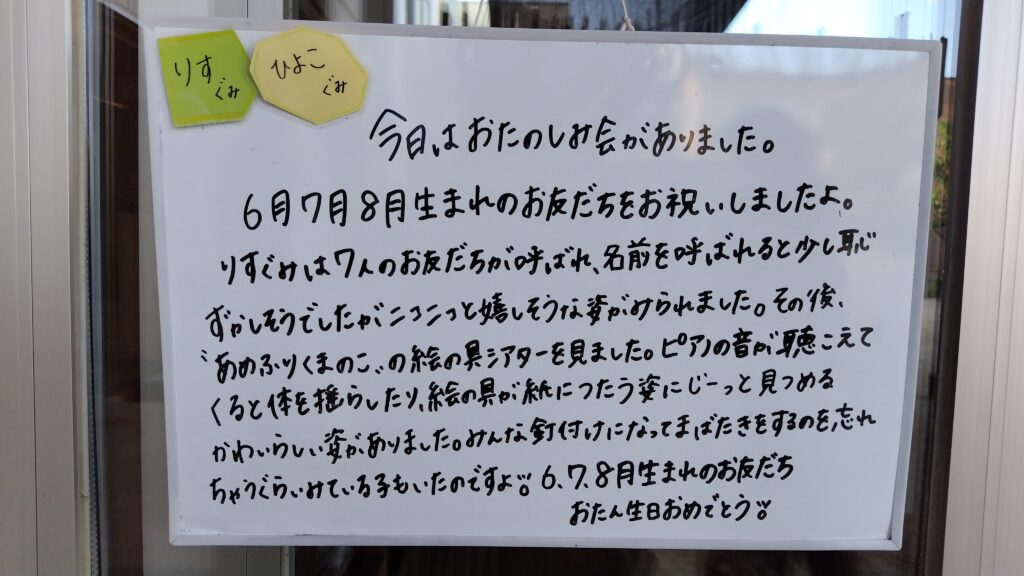 りす
ぐみ
ひよこ
ぐみ
今日はおたのしみ会がありました。
6月7月8月生まれのお友だちをお祝いしましたよ。
りすぐみは7人のお友だちが呼ばれ、名前を呼ばれると少し恥
ずかしそうでしたがニコニコと嬉しそうな姿がみられました。その後、
"あめふりくまのこ"の絵の具シアターを見ました。ピアノの音が聴こえて
くると体を揺らしたり、絵の具が紙につたう姿にじーっと見つめる
かわいらしい姿がありました。みんな釘付けになってまばたきをするのを忘れ
ちゃうぐらいみている子もいたのですよ!! 6、7、8月生まれのお友だち
おたん生日おめでとう!!